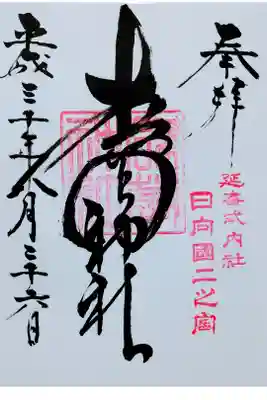 奉拝
延喜式内社
日向國二之宮
都萬神社
平成三十年八月二十六日